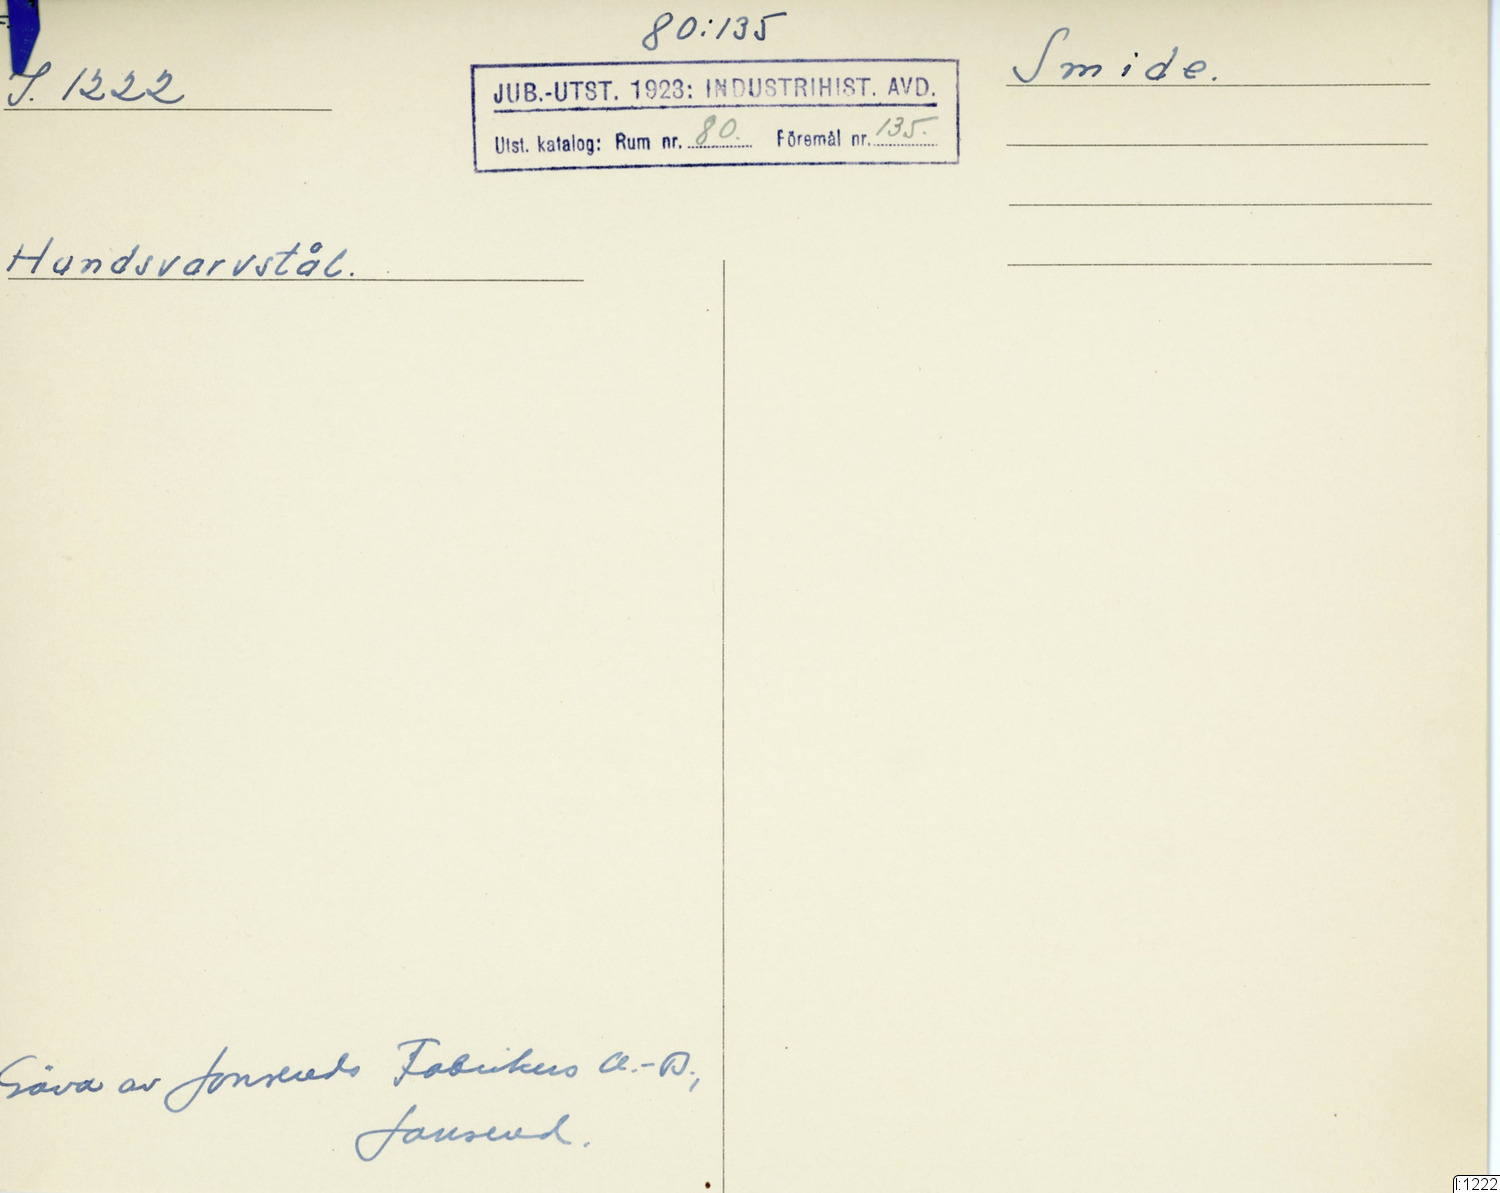 80:135
I. 1222
Smide.
JUB.-UTST. 1923: INDUSTRIHIST. AVD.
Utst. katalog: Rum nr. 80. Föremål nr. 135.
Handsvarvstål.
Gåva av Jonsereds Fabrikers A.-B.,
Jonsered.
I:1222